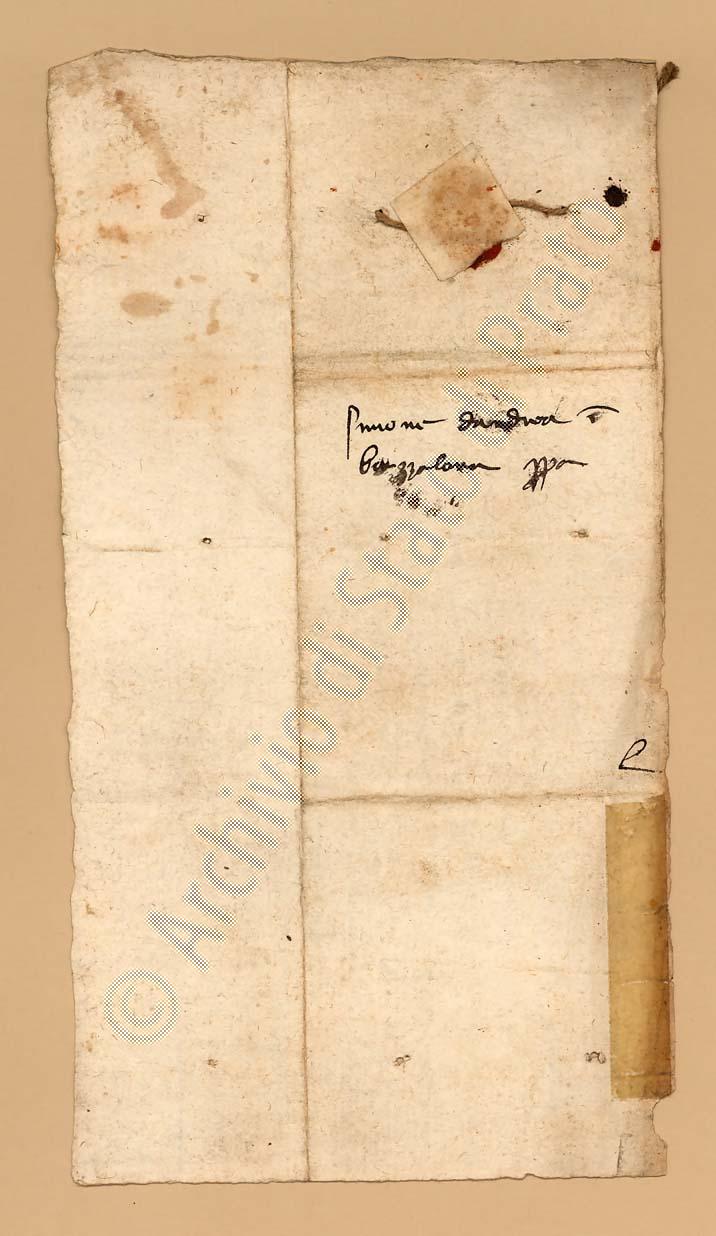 Simone dandrea ī
barzalona ppa
© Archivio di Stato di Prato